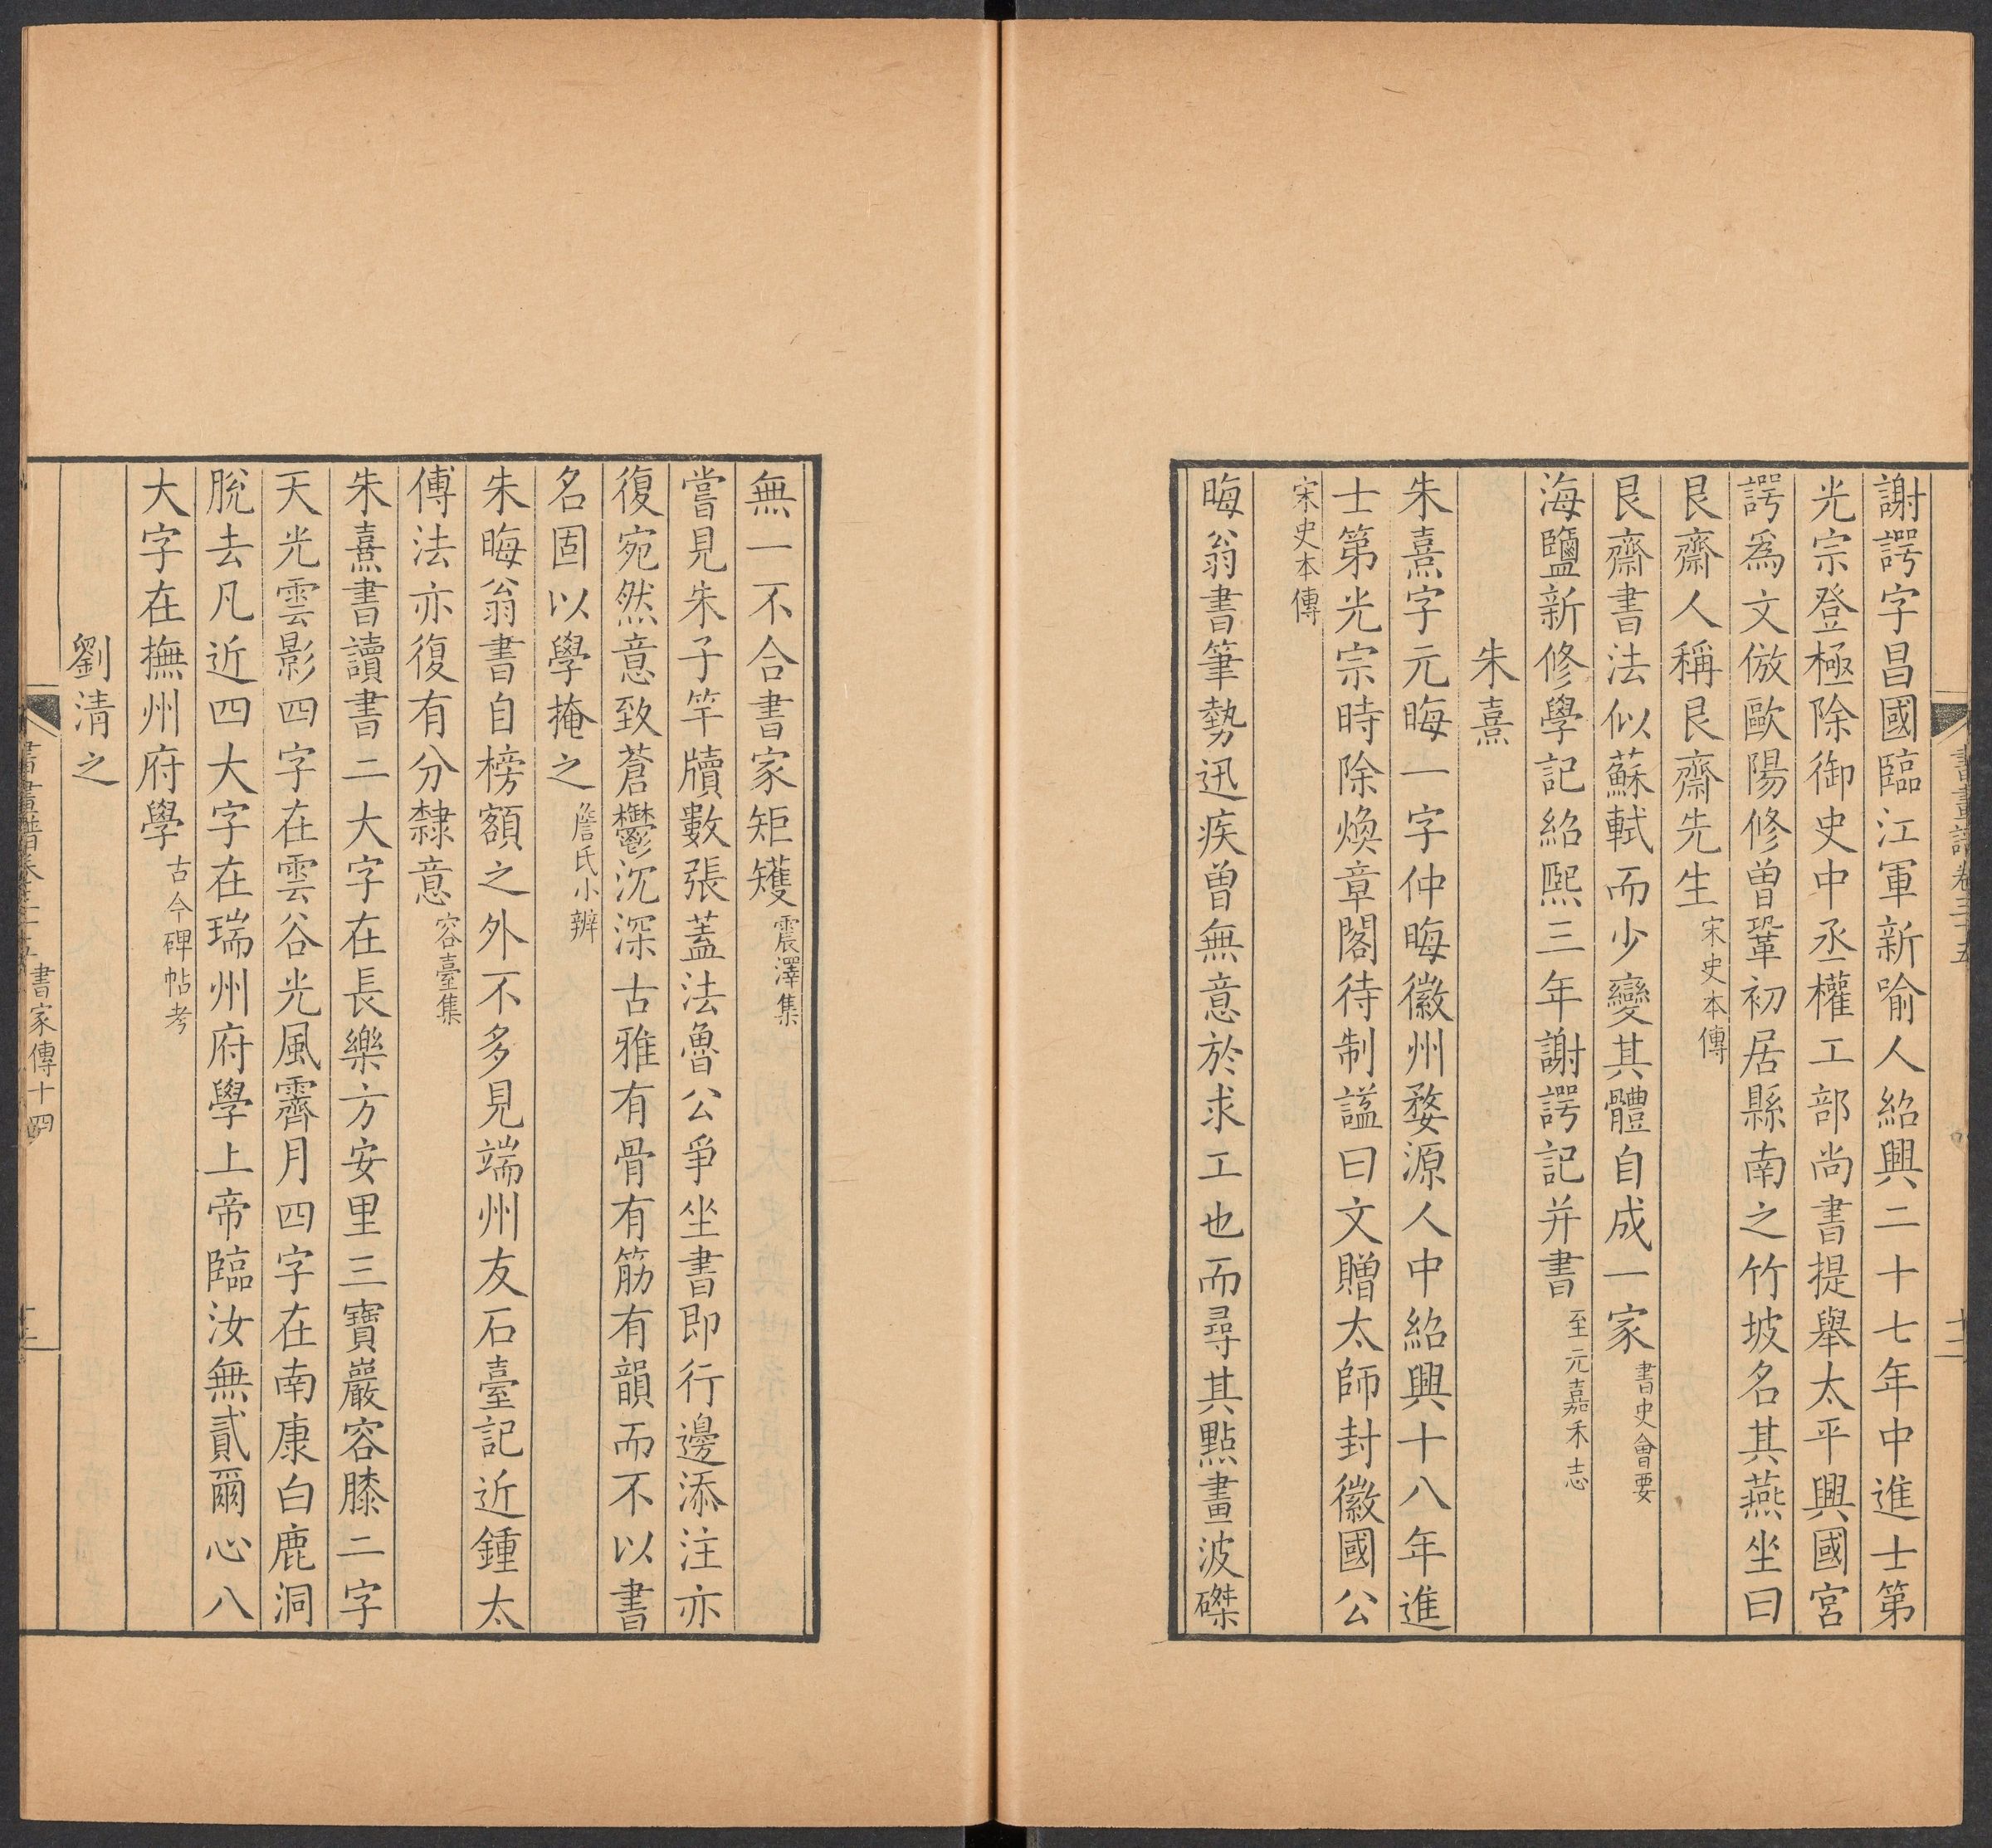 書畫譜卷三十五
十二
謝諤字昌國臨江軍新喻人紹興二十七年中進士第
光宗登極除御史中丞權工部尚書提舉太平興國宮
諤爲文倣歐陽修曾鞏初居縣南之竹坡名其燕坐曰
艮齋人稱艮齋先生宋史本傳
艮齋書法似蘇軾而少變其體自成一家書史會要
海鹽新修學記紹熙三年謝諤記并書至元嘉禾志
朱熹
朱熹字元晦一字仲晦徽州婺源人中紹興十八年進
士第光宗時除煥章閣待制謚曰文贈太師封徽國公
宋史本傳
晦翁書筆勢迅疾曾無意於求工也而尋其點畫波磔
無一不合書家矩矱震澤集
嘗見朱子竿牘數張蓋法魯公爭坐書即行邊添注亦
復宛然意致蒼鬱沉深古雅有骨有筋有韻而不以書
名固以學掩之詹氏小辨
朱晦翁書自榜額之外不多見端州友石臺記近鍾太
傅法亦復有分隸意容臺集
朱熹書讀書二大字在長樂方安里三寶巖容膝二字
天光雲影四字在雲谷光風霽月四字在南康白鹿洞
脫去凡近四大字在瑞州府學上帝臨汝無貳爾心八
大字在撫州府學古今碑帖考
劉清之
書畫譜卷三十五書家傳十四